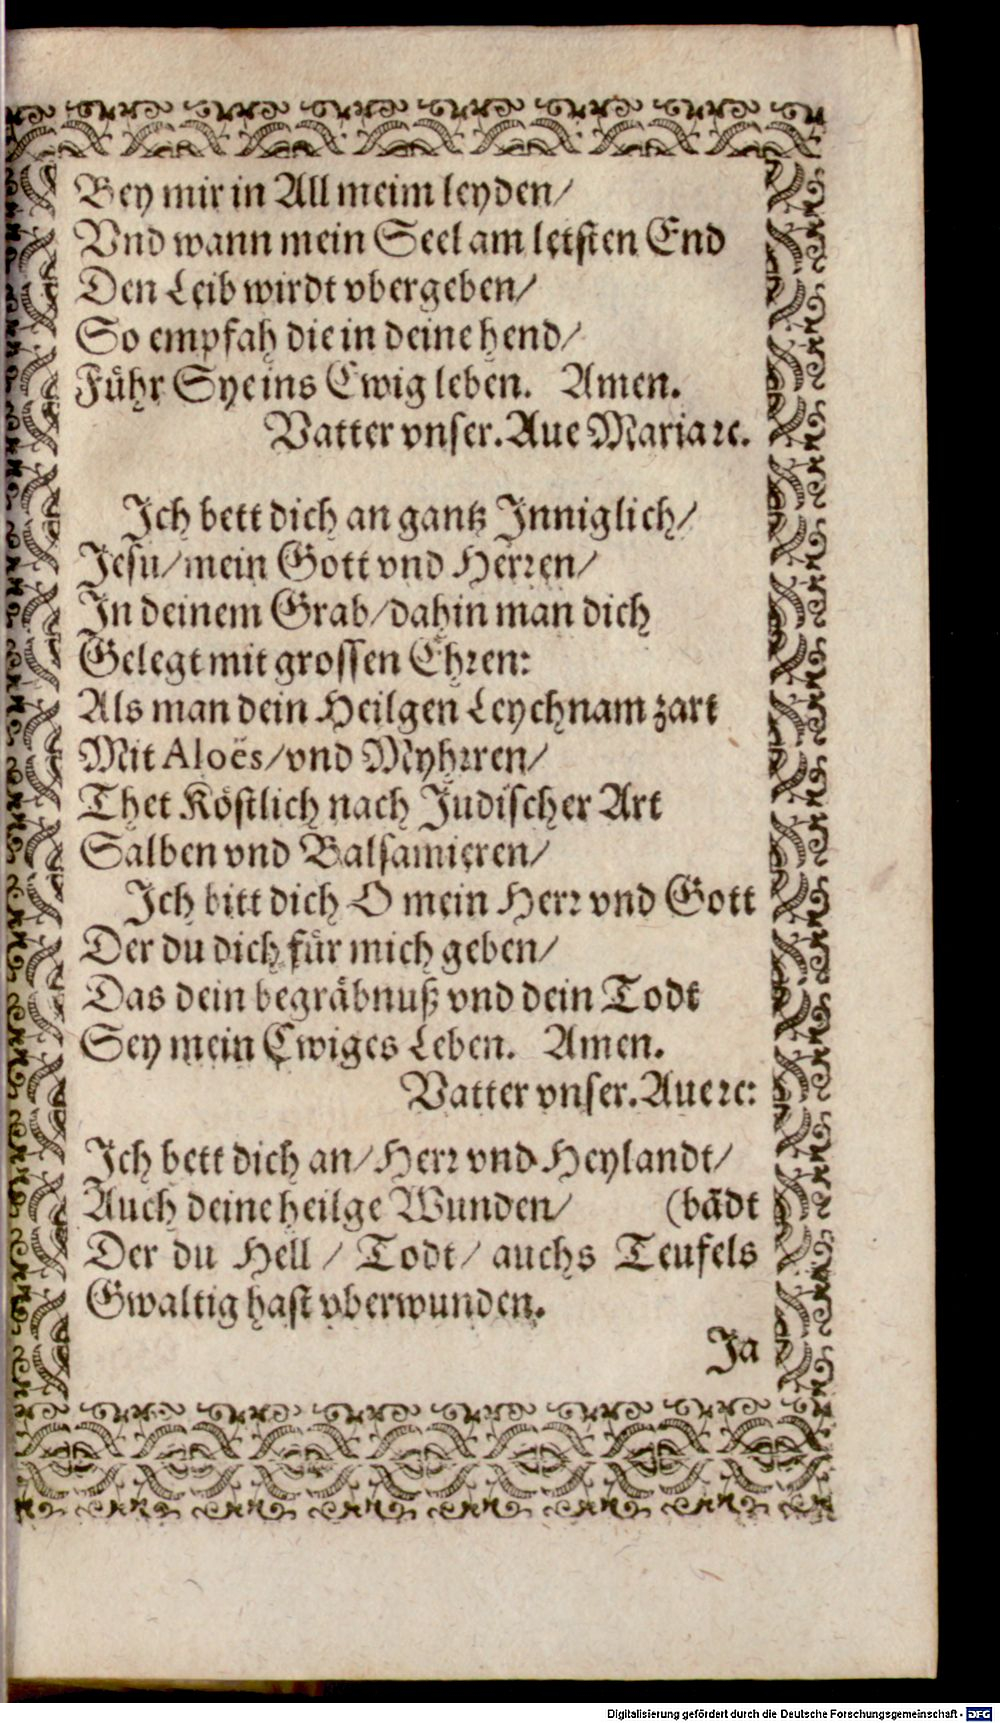 Bey mir in All meim leyden/
Vnd wann mein Seel am letsten End
Den Leib wirdt vbergeben/
So empfah die in deine hend/
Führ Sye ins Ewig leben. Amen.
Vatter vnser. Aue Maria ꝛc.
Ich bett dich an gantz Inniglich/
Jesu/ mein Gott vnd Herꝛen/
In deinem Grab/ dahin man dich
Gelegt mit grossen Ehꝛen:
Als man dein Heilgen Leychnam zart
Mit Aloës/ vnd Myhꝛren/
Thet Köstlich nach Judischer Art
Salben vnd Balsamieren/
Ich bitt dich O mein Herꝛ vnd Gott
Der du dich für mich geben/
Das dein begräbnuß vnd dein Todt
Sey mein Ewiges Leben. Amen.
Vatter vnser. Aue ꝛc:
Ich bett dich an/ Herꝛ vnd Heylandt/
Auch deine heilge Wunden/ (bādt
Der du Hell / Todt/ auchs Teufels
Gwaltig hast vberwunden.
Ja
Digitalisierung gefördert durch die Deutsche Forschungsgemeinschaft - DFG